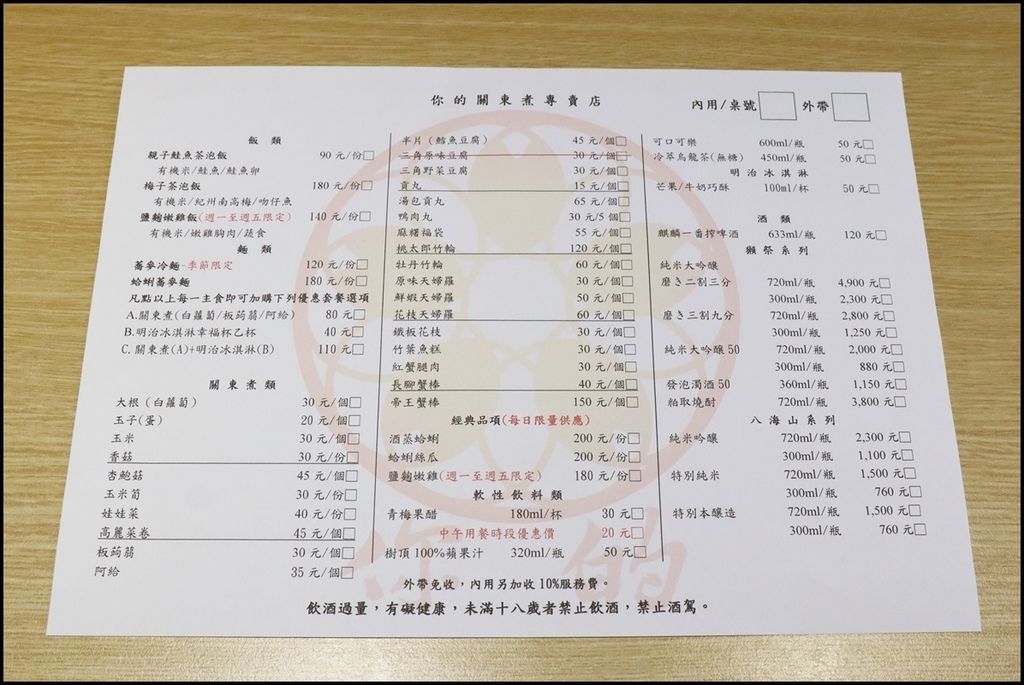 你的關東煮專賣店
內用/桌號 外帶
飯 類
親子鮭魚茶泡飯 90 元/份
有機米/鮭魚/鮭魚卵
梅子茶泡飯 180 元/份
有機米/紀州南高梅/吻仔魚
鹽麴嫩雞飯(週一至週五限定) 140 元/份
有機米/嫩雞胸肉/蔬食
麵 類
蕎麥冷麵-季節限定 120 元/份
蛤蜊蕎麥麵 180 元/份
凡點以上每一主食即可加購下列優惠套餐選項
A.關東煮(白蘿蔔/板蒟蒻/阿給) 80 元
B.明治冰淇淋幸福杯乙杯 40 元
C.關東煮(A)+明治冰淇淋(B) 110 元
關 東 煮 類
大根(白蘿蔔) 30 元/個
玉子(蛋) 20 元/個
玉米 30 元/個
香菇 30 元/份
杏鮑菇 45 元/個
玉米筍 30 元/份
娃娃菜 40 元/份
高麗菜卷 45 元/個
板蒟蒻 30 元/個
阿給 35 元/個
半片(鱈魚豆腐) 45 元/個
三角原味豆腐 30 元/個
三角野菜豆腐 30 元/個
貢丸 15 元/個
湯包貢丸 65 元/個
鴨肉丸 30 元/5 個
麻糬福袋 55 元/個
桃太郎竹輪 120 元/個
牡丹竹輪 60 元/個
原味天婦羅 30 元/個
鮮蝦天婦羅 50 元/個
花枝天婦羅 60 元/個
鐵板花枝 30 元/個
竹葉魚糕 30 元/個
紅蟹腿肉 30 元/個
長腳蟹棒 40 元/個
帝王蟹棒 150 元/個
經典品項(每日限量供應)
酒蒸蛤蜊 200 元/份
蛤蜊絲瓜 200 元/份
鹽麴嫩雞(週一至週五限定) 180 元/份
軟 性 飲 料 類
青梅果醋 180ml/杯 30 元
中午用餐時段優惠價 20 元
樹頂 100%蘋果汁 320ml/瓶 50 元
可口可樂 600ml/瓶 50 元
冷萃烏龍茶(無糖) 450ml/瓶 50 元
明 治 冰 淇 淋
芒果/牛奶巧酥 100ml/杯 50 元
酒 類
麒麟一番搾啤酒 633ml/瓶 120 元
獺 祭 系 列
純米大吟釀
磨き二割三分 720ml/瓶 4,900 元
300ml/瓶 2,300 元
磨き三割九分 720ml/瓶 2,800 元
300ml/瓶 1,250 元
純米大吟釀 50 720ml/瓶 2,000 元
300ml/瓶 880 元
發泡濁酒 50 360ml/瓶 1,150 元
粕取燒酎 720ml/瓶 3,800 元
八 海 山 系 列
純米吟釀 720ml/瓶 2,300 元
300ml/瓶 1,100 元
特別純米 720ml/瓶 1,500 元
300ml/瓶 760 元
特別本釀造 720ml/瓶 1,500 元
300ml/瓶 760 元
你的
外帶免收,內用另加收 10%服務費。
飲酒過量,有礙健康,未滿十八歲者禁止飲酒,禁止酒駕。